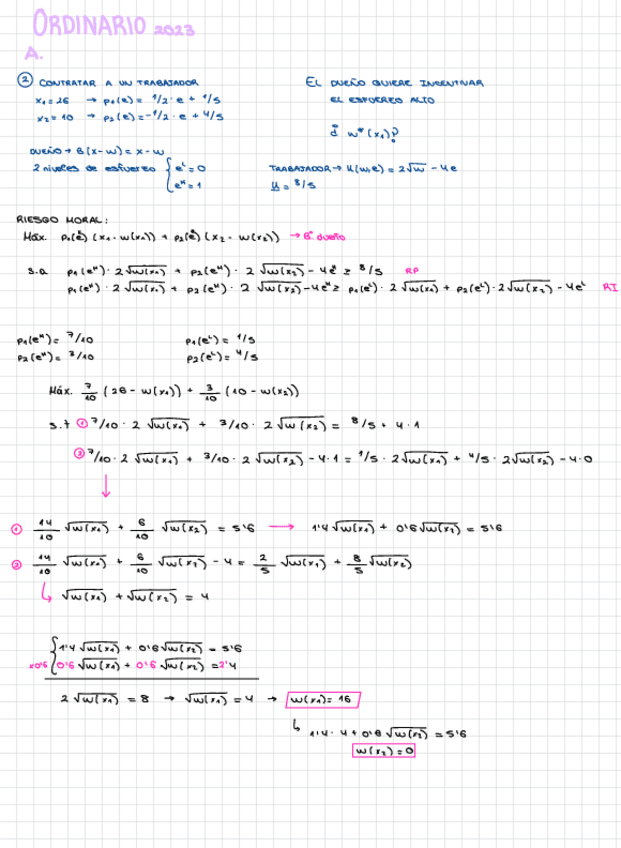 ORDINARIO 2023
A.
② CONTRATAR A UN TRABAJADOR
x₁ = 26 → p₁(e) = 1/2 · e + 1/5
x₂ = 10 → p₂(e) = -1/2 · e + 4/5
EL DUEÑO QUIERE INCENTIVAR
EL ESFUERZO ALTO
¿ w*(x₁)?
DUEÑO → B(x-w) = x - w
2 niveles de esfuerzo { eᴸ = 0
eᴴ = 1
TRABAJADOR → U(w,e) = 2√w - 4e
U = 8/5
RIESGO MORAL:
Máx. p₁(e) (x₁ - w(x₁)) + p₂(e) (x₂ - w(x₂)) → Bº dueño
s.a p₁(eᴴ) · 2√w(x₁) + p₂(eᴴ) · 2√w(x₂) - 4e ≥ 8/5 RP
p₁(eᴴ) · 2√w(x₁) + p₂(eᴴ) · 2√w(x₂) - 4eᴴ ≥ p₁(eᴸ) · 2√w(x₁) + p₂(eᴸ) · 2√w(x₂) - 4eᴸ RI
p₁(eᴴ) = 7/10 p₁(eᴸ) = 1/5
p₂(eᴴ) = 3/10 p₂(eᴸ) = 4/5
Máx. 7/10 (26 - w(x₁)) + 3/10 (10 - w(x₂))
s.t ① 7/10 · 2√w(x₁) + 3/10 · 2√w(x₂) = 8/5 + 4·1
② 7/10 · 2√w(x₁) + 3/10 · 2√w(x₂) - 4·1 = 1/5 · 2√w(x₁) + 4/5 · 2√w(x₂) - 4·0
① 14/10 √w(x₁) + 6/10 √w(x₂) = 5'6 → 1'4√w(x₁) + 0'6√w(x₂) = 5'6
② 14/10 √w(x₁) + 6/10 √w(x₂) - 4 = 2/5 √w(x₁) + 8/5 √w(x₂)
↳ √w(x₁) + √w(x₂) = 4
{ 1'4√w(x₁) + 0'6√w(x₂) = 5'6
x0'6 0'6√w(x₁) + 0'6√w(x₂) = 2'4
2√w(x₁) = 8 → √w(x₁) = 4 → w(x₁) = 16
↳ 1'4·4 + 0'6√w(x₂) = 5'6
w(x₂) = 0